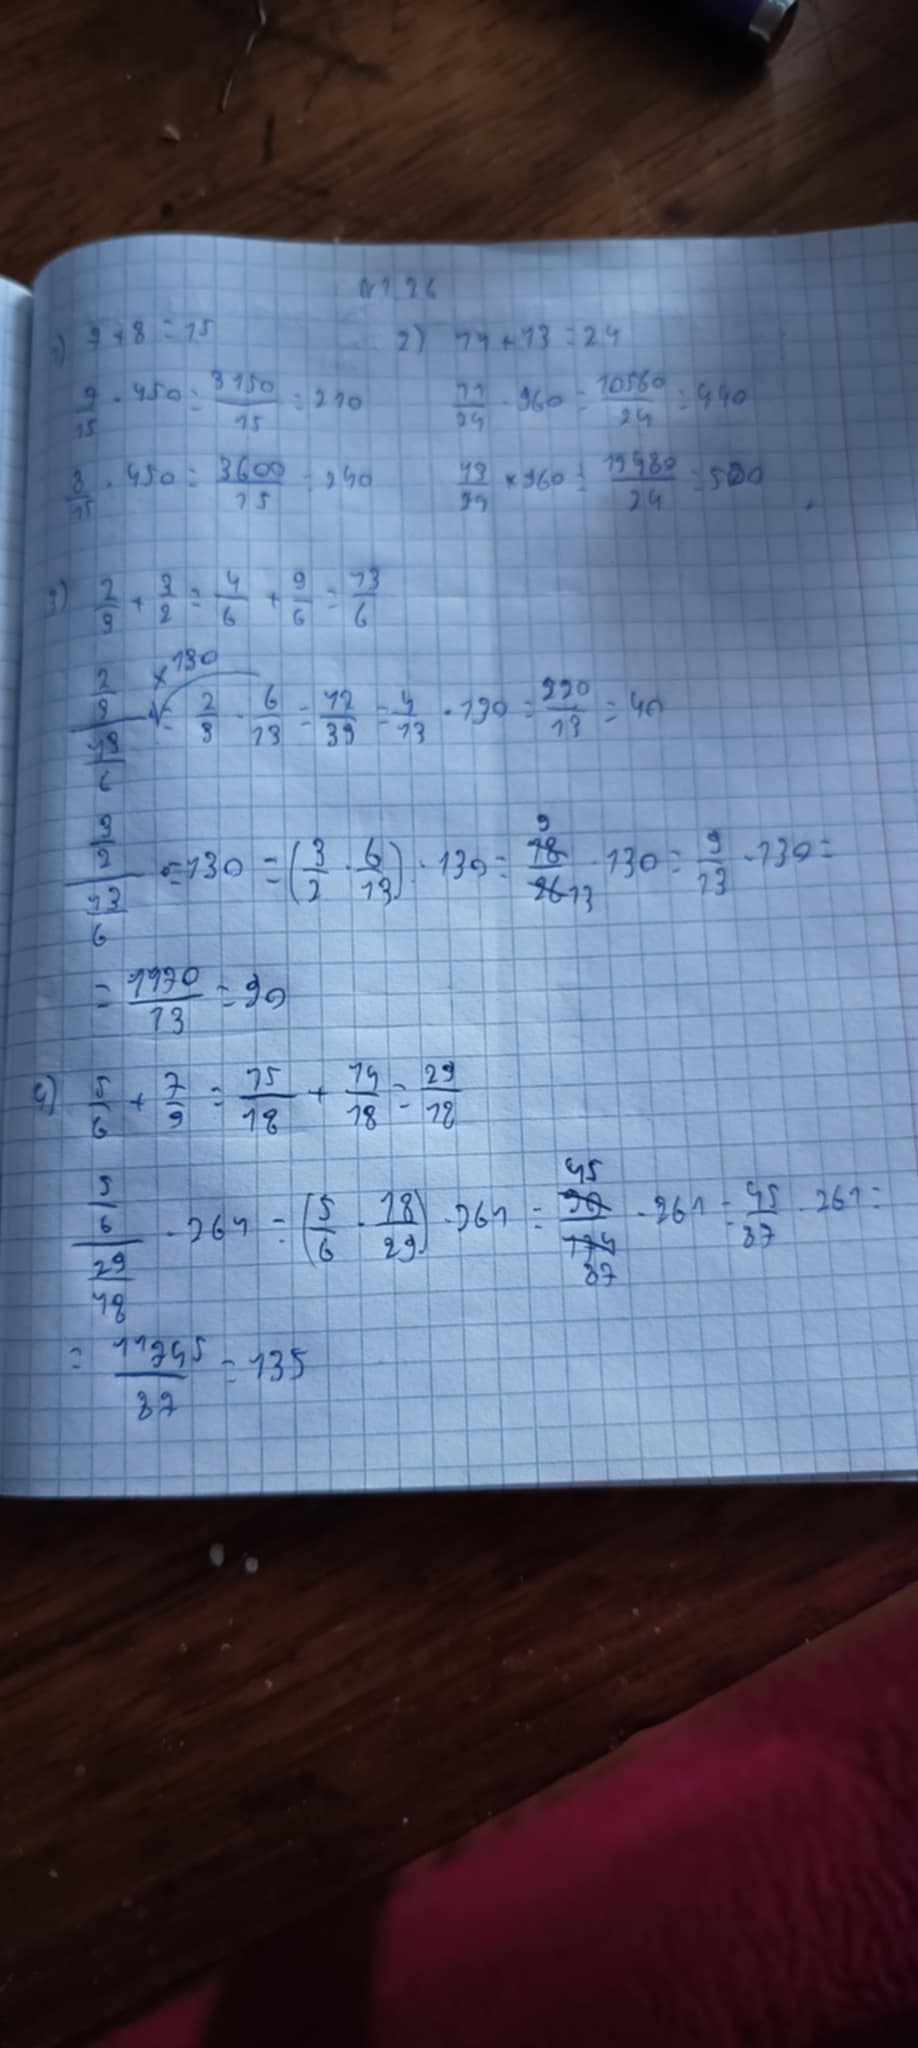 1) 7 + 8 = 15
2) 11 + 13 = 24
7/15 · 450 = 3150/15 = 210
11/24 · 960 = 10560/24 = 440
8/15 · 450 = 3600/15 = 240
13/24 × 960 = 12480/24 = 520
3) 2/3 + 3/2 = 4/6 + 9/6 = 13/6
(2/3)/(13/6) × 130 = 2/3 · 6/13 = 12/39 = 4/13 · 130 = 520/13 = 40
(3/2)/(13/6) · 130 = (3/2 · 6/13) · 130 = 18/26 9/13 · 130 = 9/13 · 130 =
= 1170/13 = 90
4) 5/6 + 7/9 = 15/18 + 14/18 = 29/18
(5/6)/(29/18) · 261 = (5/6 · 18/29) · 261 = 90/174 45/87 · 261 = 45/87 · 261 =
= 11745/87 = 135